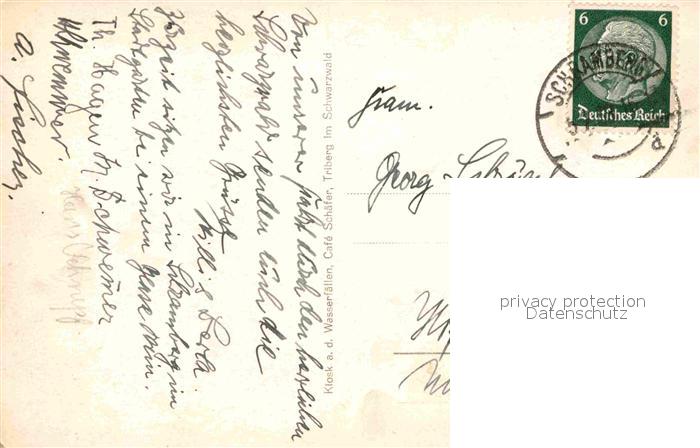 Von unserer Fahrt durch den herrlichen
Schwarzwald senden Euch die
herzlichsten Grüße
Willi & Berta.
Zur Zeit sitzen wir in Schramberg im
bei einem Glase Wein.
Th. Hagen H. Schwemer
A. Fischer.
Kiosk a. d. Wasserfällen, Café Schäfer, Triberg im Schwarzwald
Fam.
Georg
6 6
Deutsches Reich
SCHRAMBERG
privacy protection
Datenschutz